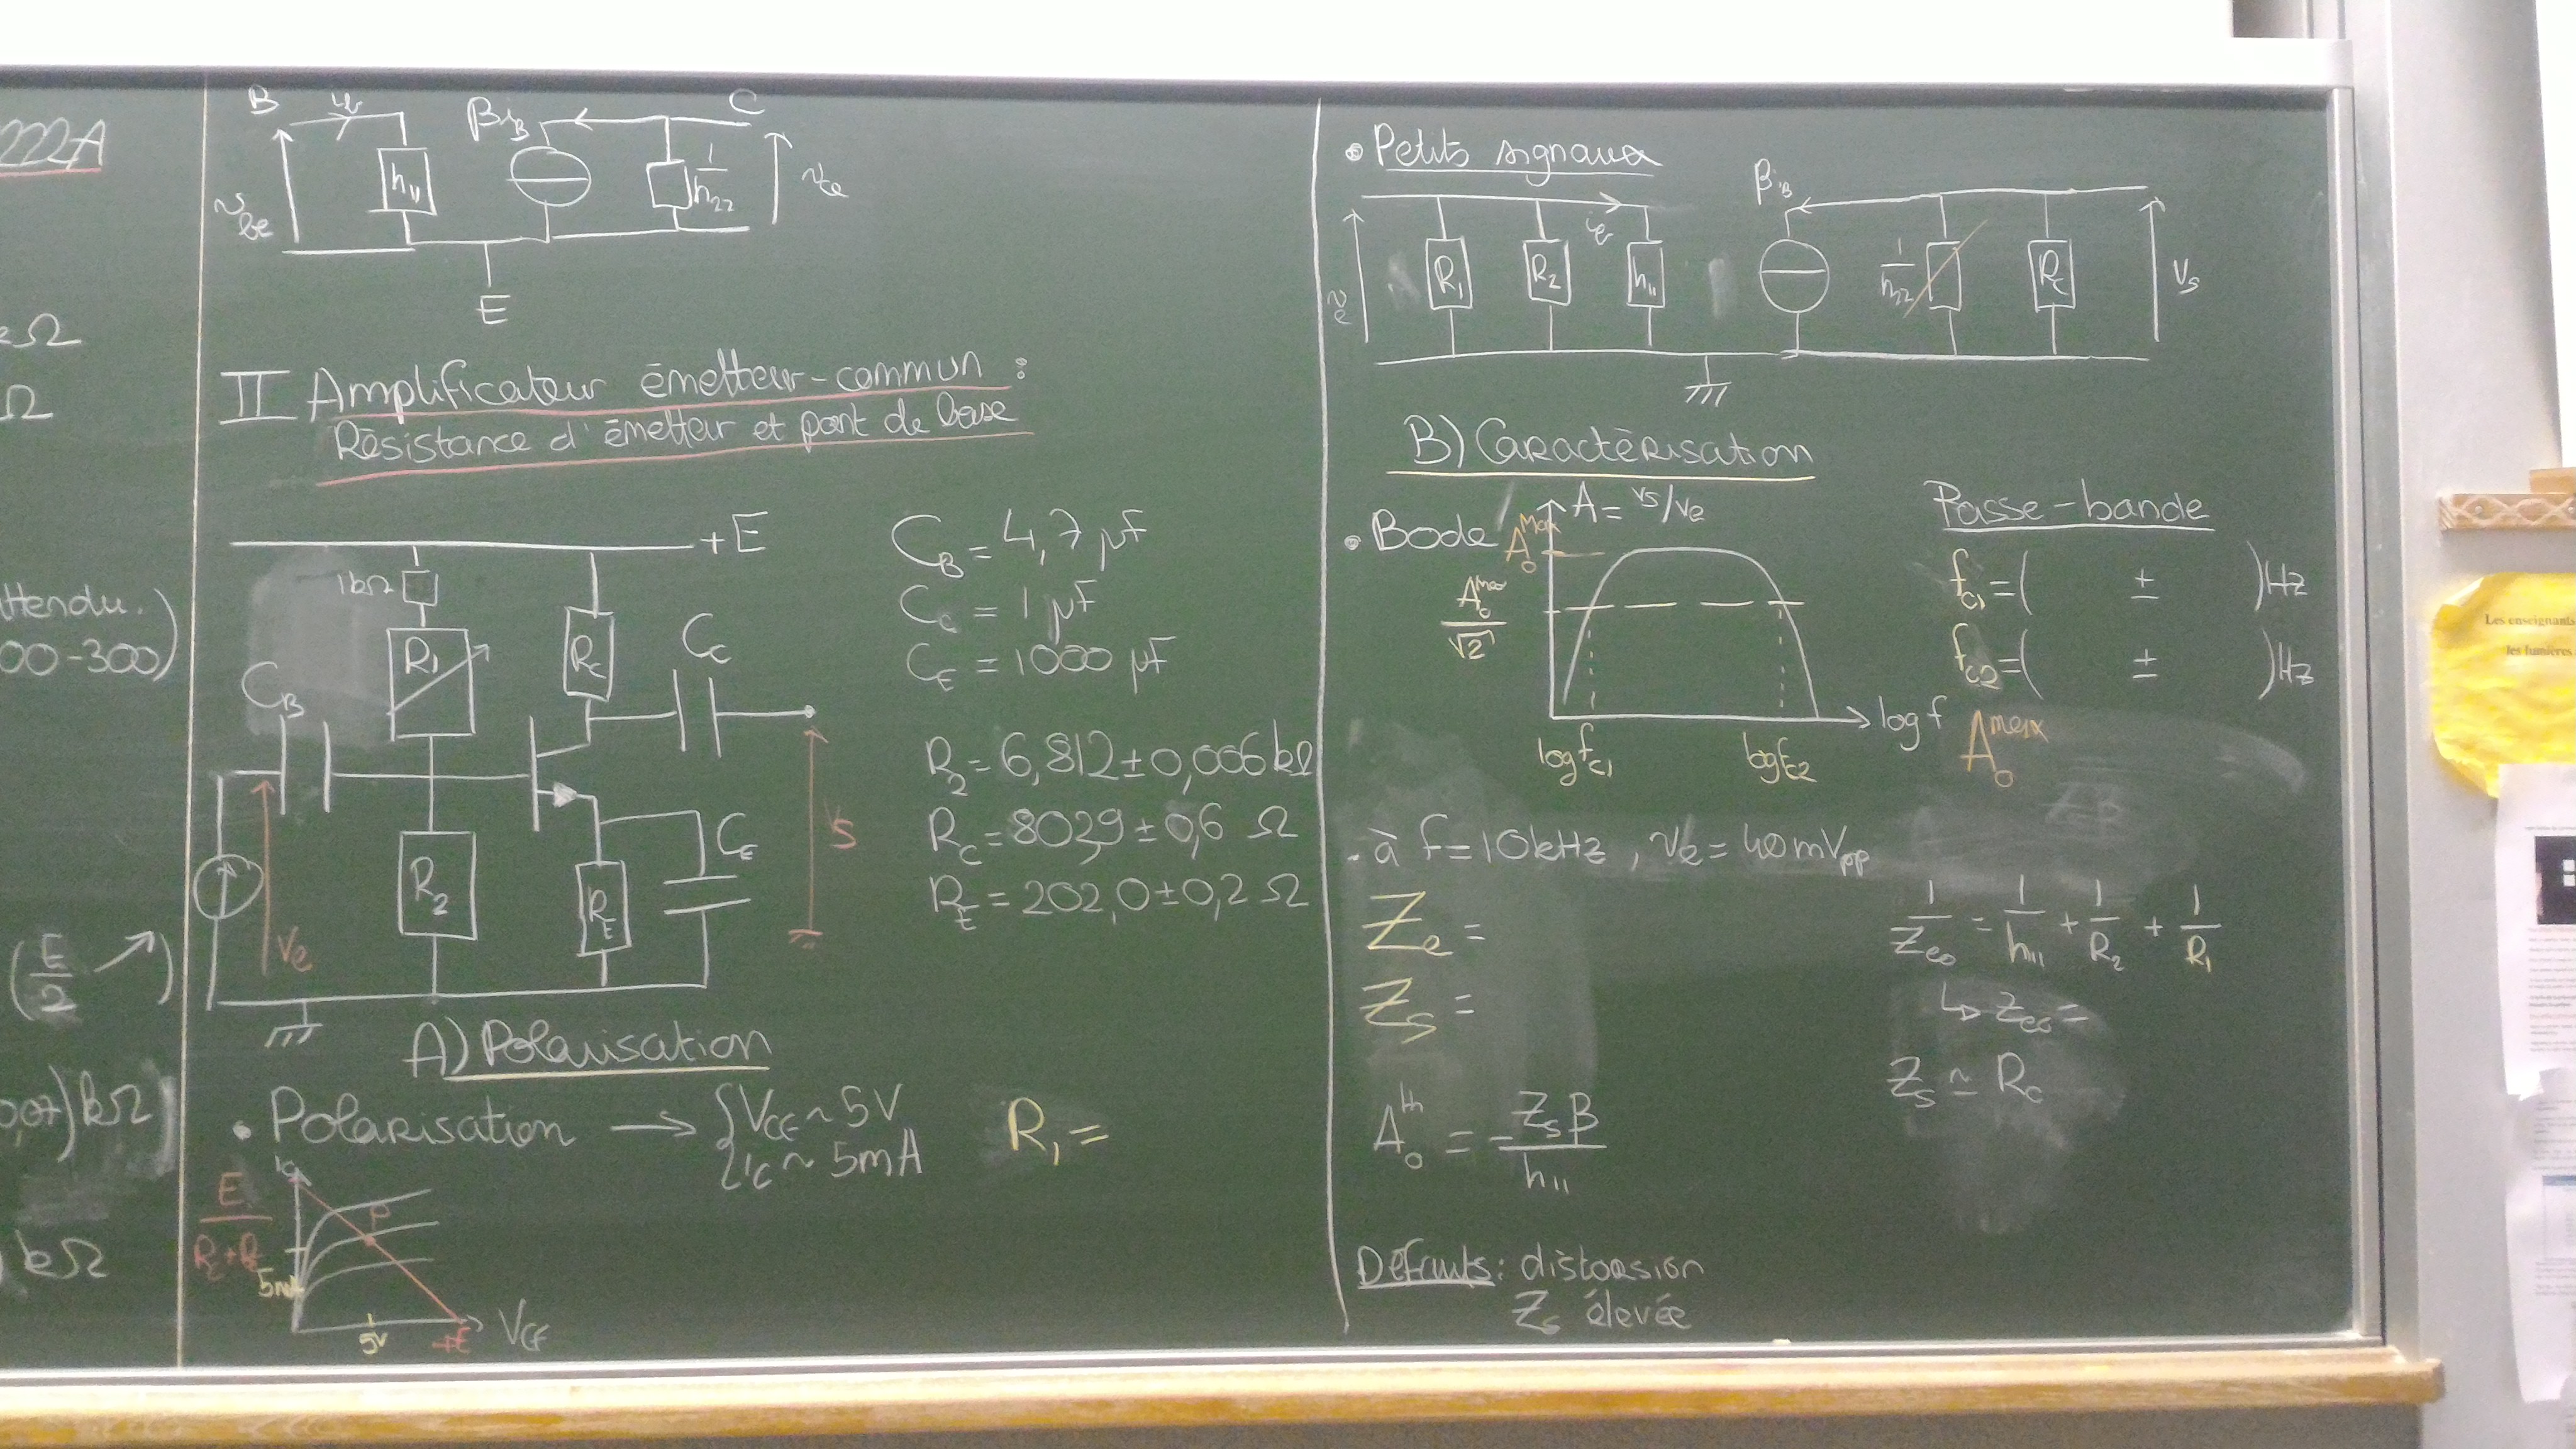 222A
kΩ
Ω
attendu.
00-300)
(E/2 ↗)
0,07) kΩ
) kΩ
B
i_b
βi_B
C
v_be
h11
1/h22
v_ce
E
II Amplificateur émetteur-commun :
Résistance d'émetteur et pont de base
+E
1kΩ
R1
RC
CC
CB
R2
RE
CE
Ve
Vs
CB = 4,7 µF
CC = 1 µF
CE = 1000 µF
R2 = 6,812 ± 0,006 kΩ
RC = 802,9 ± 0,6 Ω
RE = 202,0 ± 0,2 Ω
A) Polarisation
• Polarisation → { VCE ~ 5V
IC ~ 5mA
R1 =
IC
E/(RC+RE)
P
5mA
5V
+E
VCE
• Petits signaux
βi_B
v_e
R1
R2
i_b
h11
1/h22
RC
Vs
B) Caractérisation
• Bode
A = vs/ve
A0^Max
A0^max/√2
log f
log fC1
log fC2
Passe-bande
fC1 = ( ± ) Hz
fC2 = ( ± ) Hz
A0^max
. à f = 10kHz , ve = 40mVpp
Ze =
Zs =
A0^th = -Zsβ/h11
1/Zeo = 1/h11 + 1/R2 + 1/R1
↳ Zeo =
Zs ≃ RC
Défauts : distorsion
Zs élevée
Les enseignants
les lumières